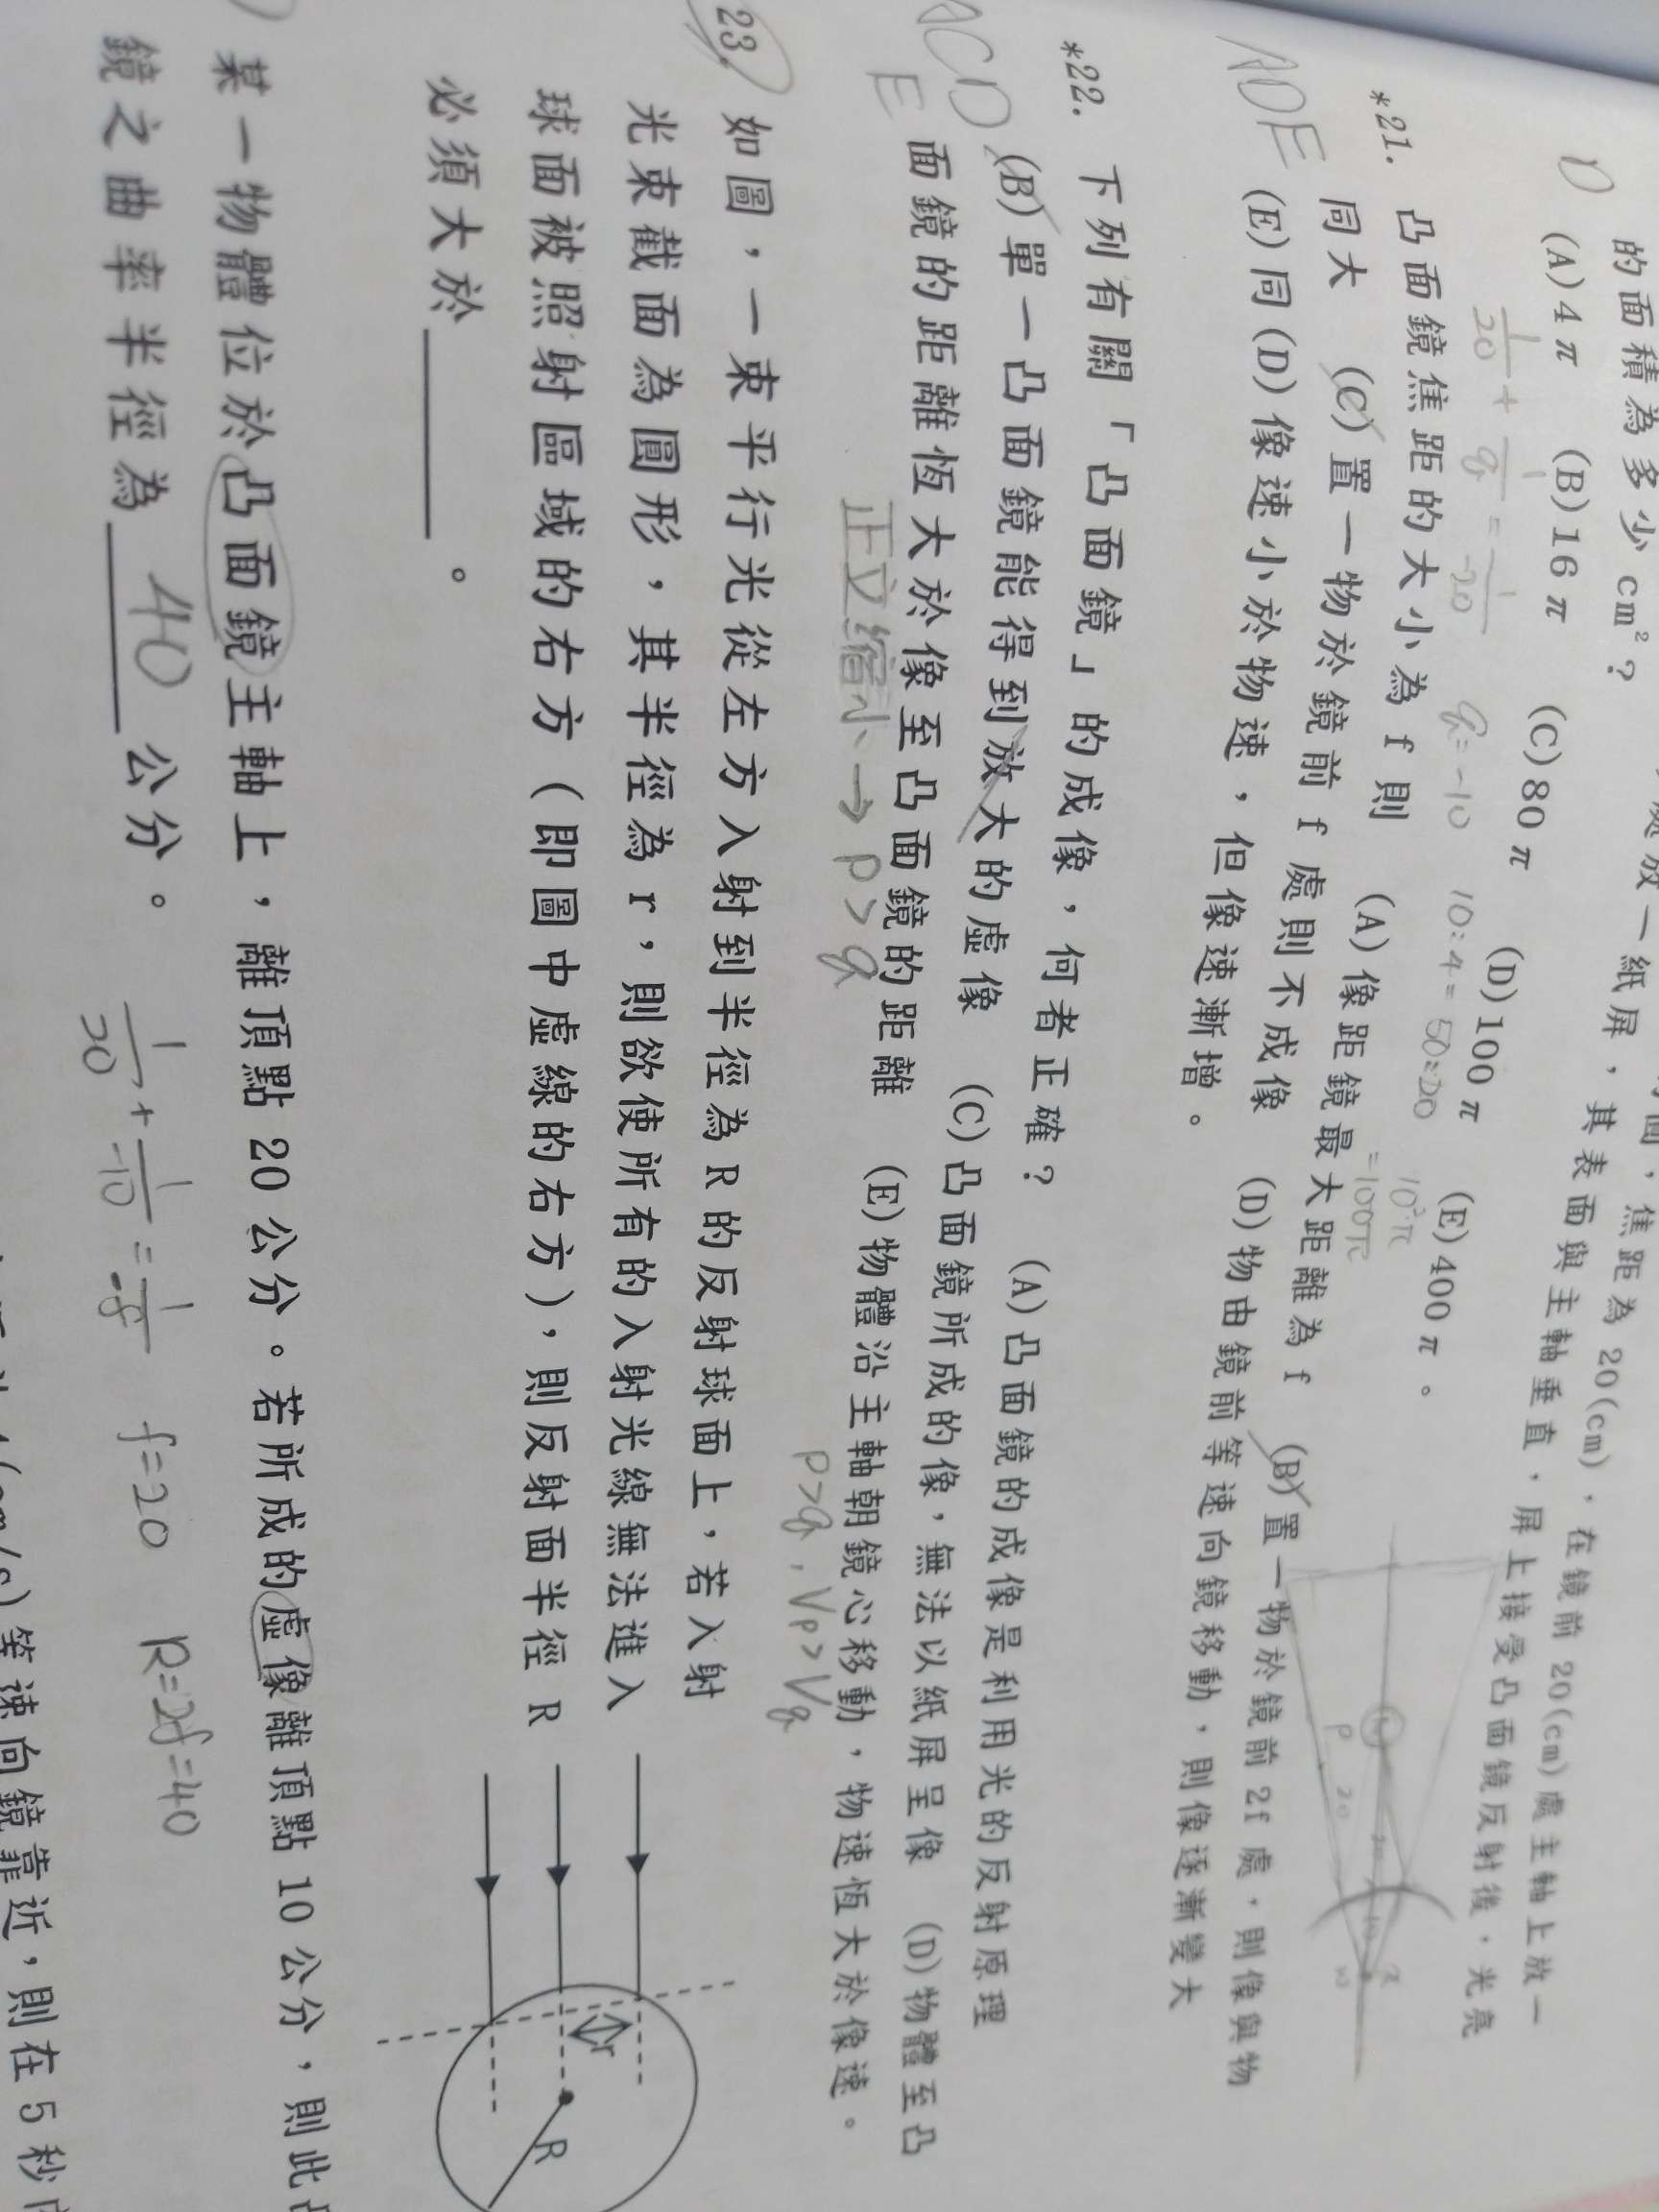 的面積為多少 cm²?
D (A)4π (B)16π (C)80π (D)100π (E)400π。
焦距為 20(cm),在鏡前 20(cm)處主軸上放一
處放一紙屏,其表面與主軸垂直,屏上接受凸面鏡反射後,光亮
1/20 + 1/q = 1/-20 q=-10 10:4=50:20
10²π
=100π
*21. 凸面鏡焦距的大小為 f 則 (A)像距鏡最大距離為 f (B)置一物於鏡前 2f 處,則像與物
ADE 同大 (C)置一物於鏡前 f 處則不成像 (D)物由鏡前等速向鏡移動,則像逐漸變大
(E)同(D)像速小於物速,但像速漸增。
P 20
*22. 下列有關「凸面鏡」的成像,何者正確? (A)凸面鏡的成像是利用光的反射原理
ACD (B)單一凸面鏡能得到放大的虛像 (C)凸面鏡所成的像,無法以紙屏呈像 (D)物體至凸
E 面鏡的距離恆大於像至凸面鏡的距離 (E)物體沿主軸朝鏡心移動,物速恆大於像速。
正立縮小 → p>q
p>q , Vp>Vq
23. 如圖,一束平行光從左方入射到半徑為 R 的反射球面上,若入射
光束截面為圓形,其半徑為 r,則欲使所有的入射光線無法進入
球面被照射區域的右方(即圖中虛線的右方),則反射面半徑 R
必須大於______。
r
R
某一物體位於凸面鏡主軸上,離頂點 20 公分。若所成的虛像離頂點 10 公分,則此凸
鏡之曲率半徑為 40 公分。
1/20 + 1/-10 = 1/-f f=20 R=2f=40
等速向鏡靠近,則在 5 秒